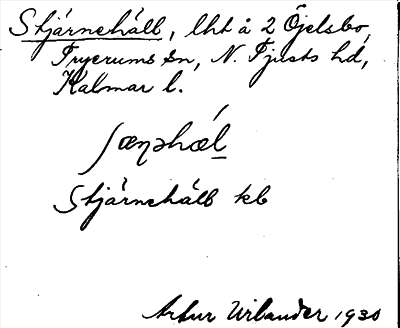 Stjärnehäll, lht å 2 Öjelsbo,
Tryserums sn, N. Tjusts hd,
Kalmar l.
ʃæṇəhæl
Stjärnehäll kb
Artur Wilander 1930